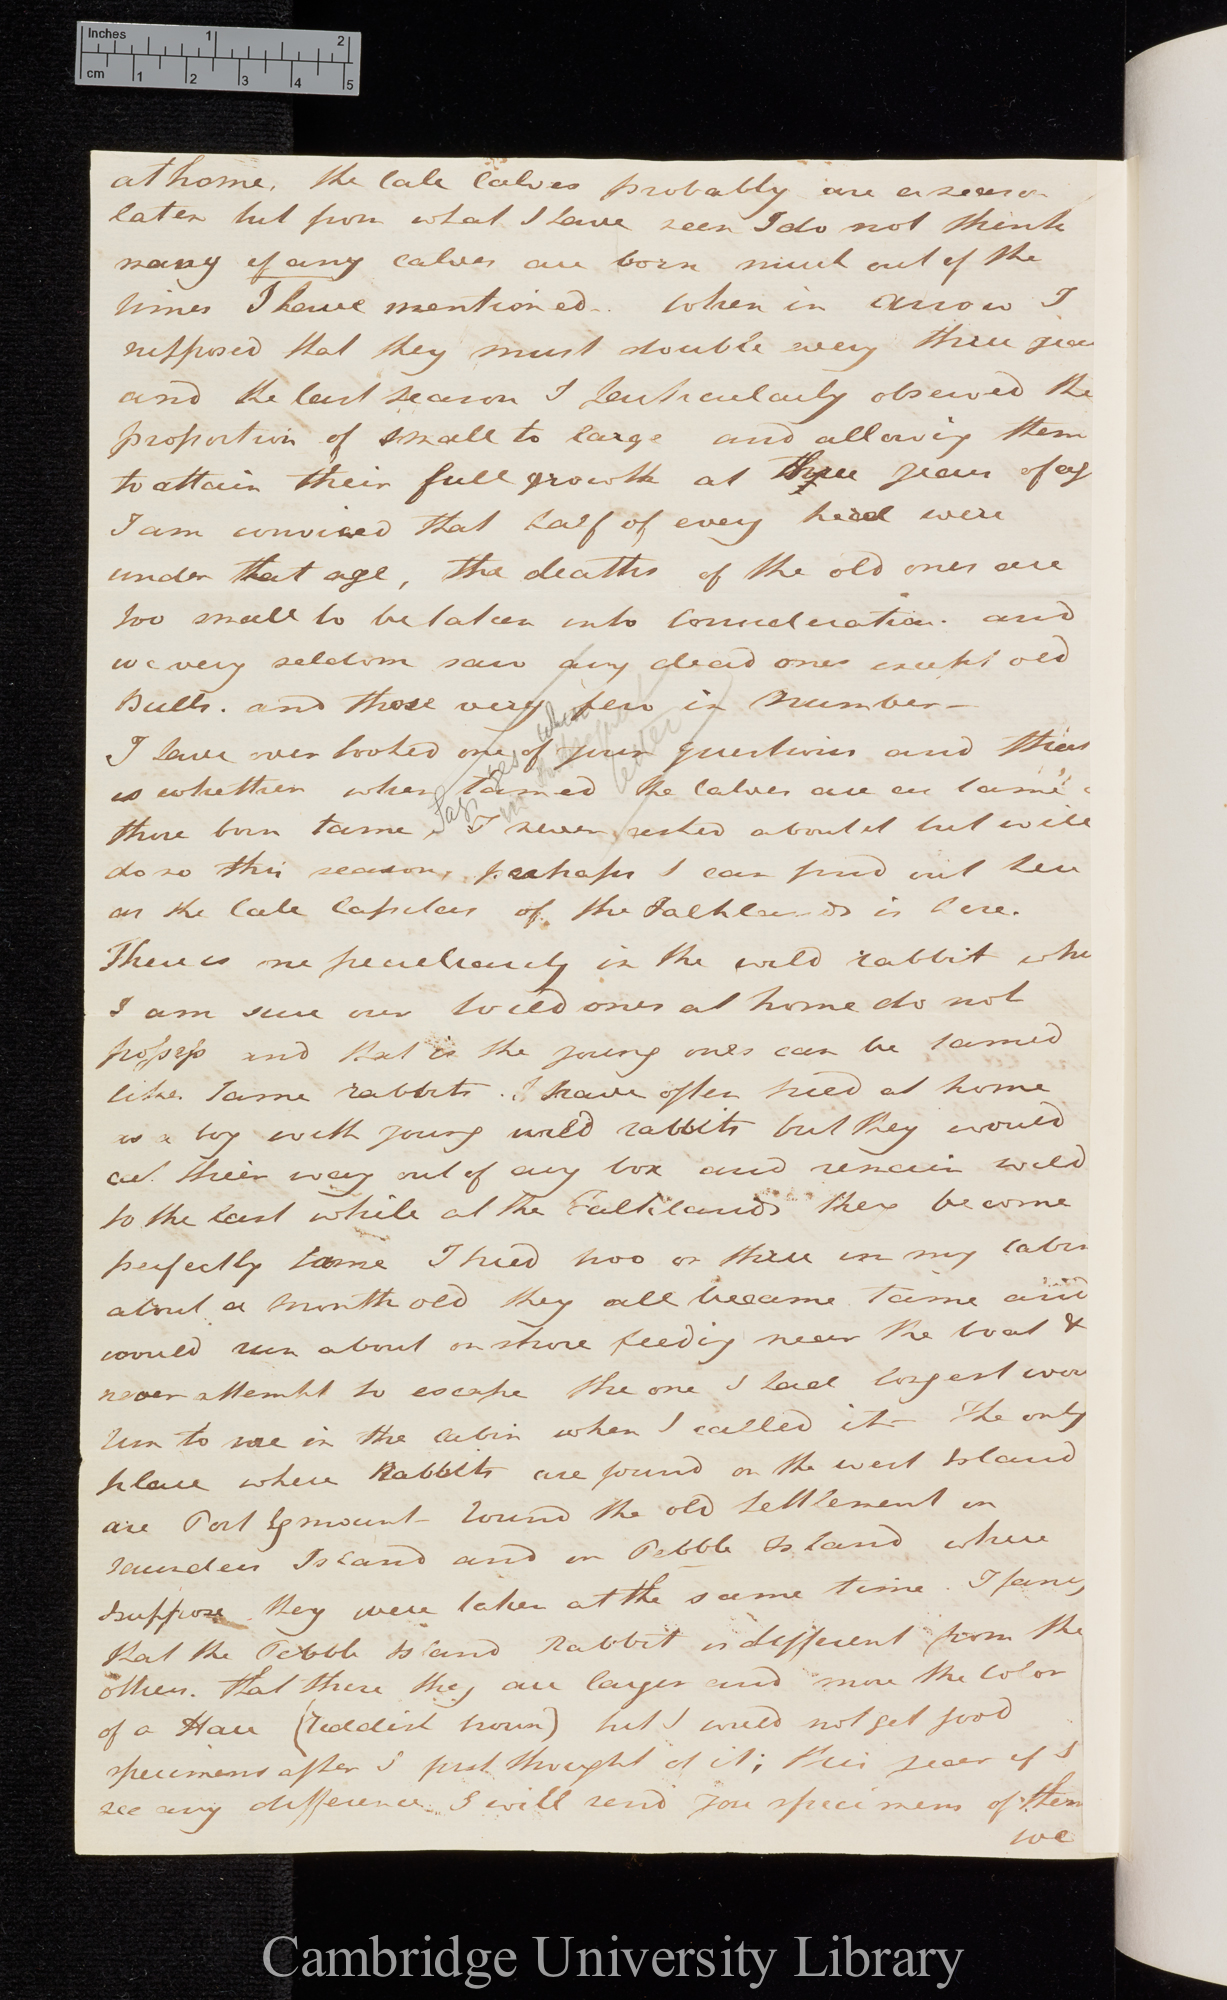 Inches 1 2
cm 1 2 3 4 5
at home. the late Calves probably are a season
later but from what I have seen I do not think
many if any calves are born much out of the
times I have mentioned.. When in Arrow I
supposed that they must double every three year
and the last season I particularly observed the
proportion of small to large and allowing them
to attain their full growth at three years of ag
I am convinced that half of every herd were
under that age, the deaths of the old ones are
too small to be taken into Consideration. and
we very seldom saw any dead ones except old
Bulls. and those very few in Number —
I have over looked one of your questions and that
is whether when tamed the Calves are as tame
those born tame, I never asked about it but will
do so this season, perhaps I can find out here
as the late Capelar of the Falklands is here.
Says yes when
letter
There is one peculiarity in the wild rabbit whi
I am sure our Wild ones at home do not
possess and that is the young ones can be tamed
like Tame rabbits. I have often tried at home
as a boy with young wild rabbits but they would
eat their way out of any box and remain wild
to the last while at the Falklands they become
perfectly tame I tried two or three in my Cabin
about a Month old they all became Tame and
would run about on shore feeding near the boat &
never attempt to escape the one I had longest wou
run to me in the Cabin when I called it — The only
place where Rabbits are found on the west Island
are Port Egmount — round the old Settlement on
Saunders Island and on Pebble Island where
I suppose they were taken at the same time. I fancy
that the Pebble Island Rabbit is different from the
others. that there they are larger and more the Color
of a Hare (reddish brown) but I could not get good
specimens after I first thought of it; this year if I
see any difference I will send you specimens of them
we
Cambridge University Library